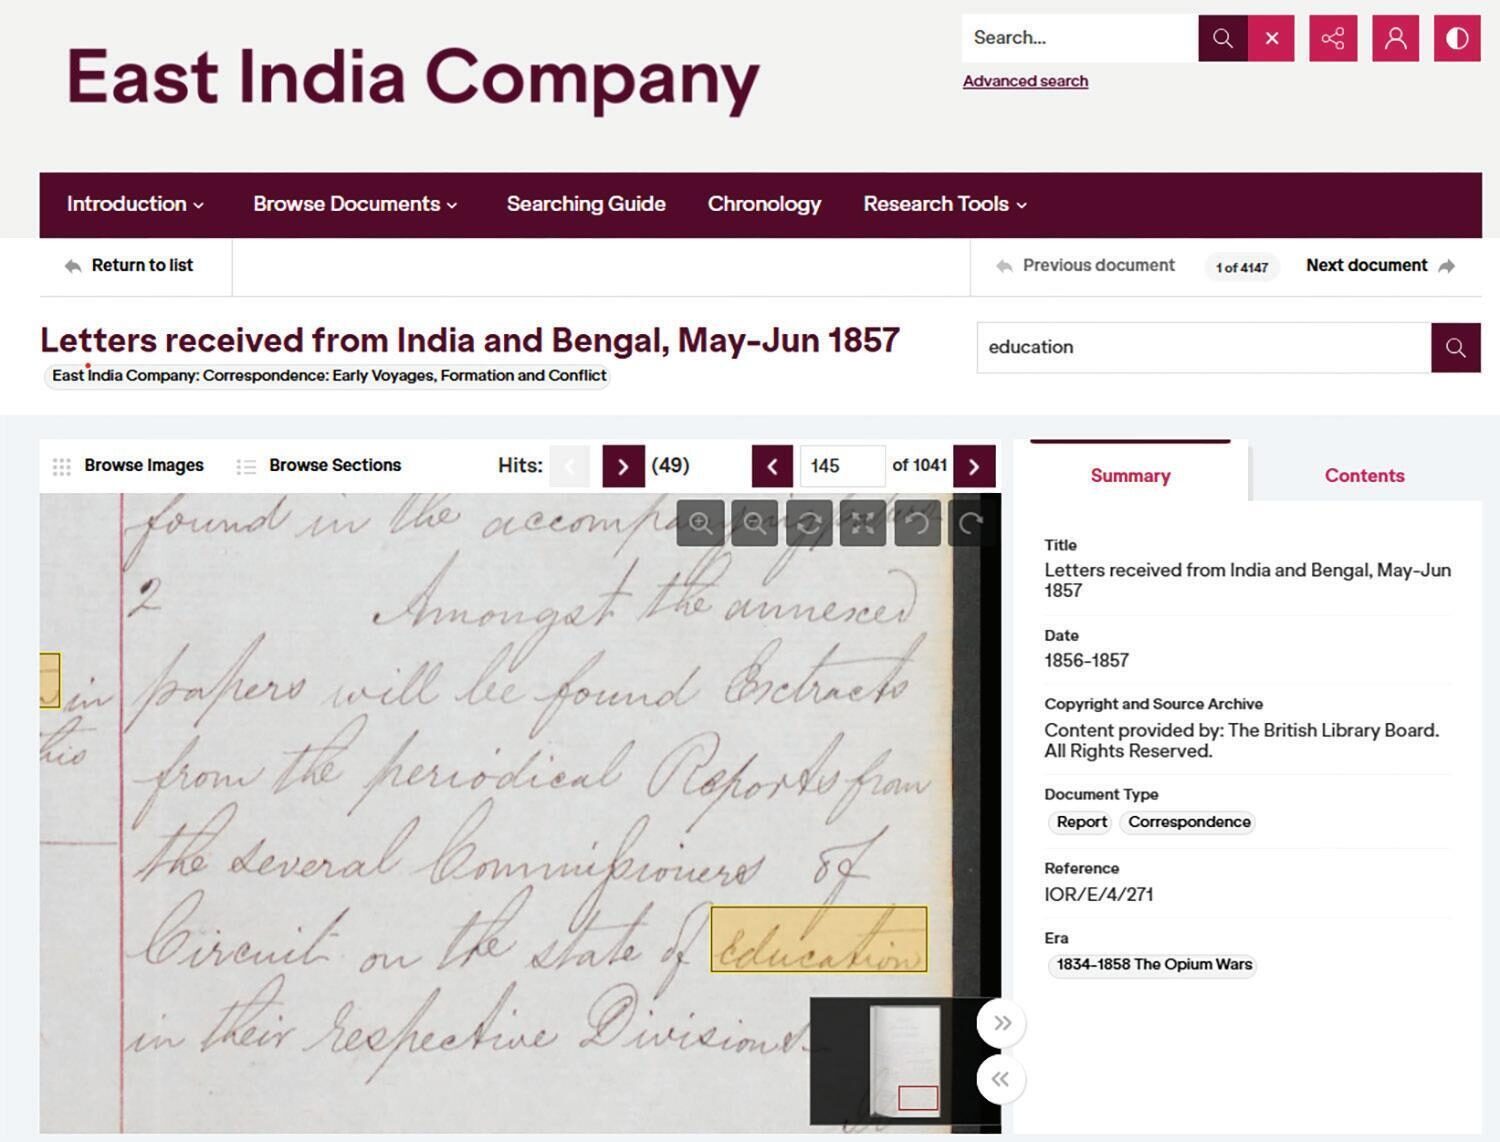 East India Company
Search...
Advanced search
Introduction
Browse Documents
Searching Guide
Chronology
Research Tools
Return to list
Previous document
1 of 4147
Next document
Letters received from India and Bengal, May-Jun 1857
East India Company: Correspondence: Early Voyages, Formation and Conflict
education
Browse Images
Browse Sections
Hits:
(49)
145
of 1041
found in the accompanying
2 Amongst the annexed
in
papers will be found Extracts
this
from the periodical Reports from
the several Commissioners of
Circuit on the state of Education
in their respective Divisions.
Summary
Contents
Title
Letters received from India and Bengal, May-Jun
1857
Date
1856-1857
Copyright and Source Archive
Content provided by: The British Library Board.
All Rights Reserved.
Document Type
Report Correspondence
Reference
IOR/E/4/271
Era
1834-1858 The Opium Wars